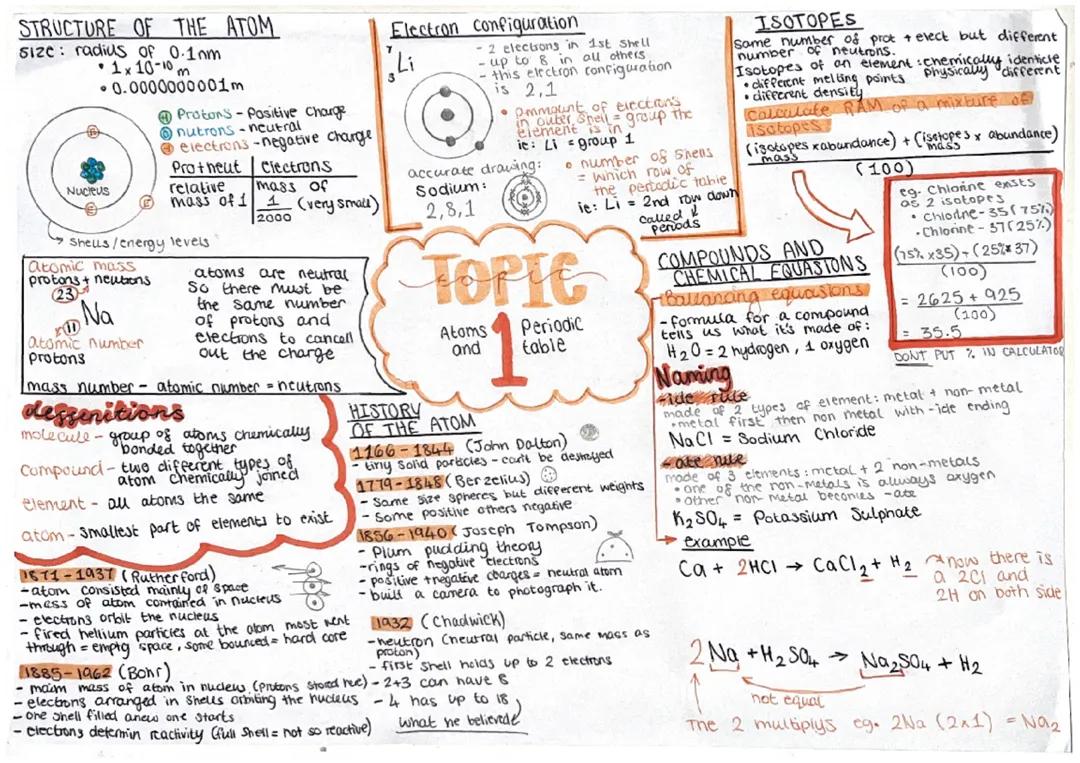 STRUCTURE OF THE ATOM
size: radius of 0.1nm
• 1x10⁻¹⁰ m
• 0.0000000001m
Protons - Positive charge
nutrons - neutral
electrons - negative charge
Pro+neut | electrons
relative mass of 1 | mass of 1/2000 (very small)
Nucleus
Shells/energy levels
Electron configuration
7
3 Li
- 2 electrons in 1st shell
- up to 8 in all others
- this electron configuration
is 2,1
• ammount of electrons
in outer shell = group the
element is in
ie: Li = group 1
accurate drawing:
Sodium:
2,8,1
• number of shells
= which row of
the periodic table
ie: Li = 2nd row down
called
periods
ISOTOPES
Same number of prot + elect but different
number of neutrons.
Isotopes of an element: chemically identicle
physically different
• different melting points
• different density
calculate RAM of a mixture of
isotopes
(isotopes mass x abundance) + (isotopes mass x abundance)
(100)
eg. Chlorine exists
as 2 isotopes
• chlorine - 35 (75%)
• Chlorine - 37 (25%)
(75% x 35) + (25% x 37)
(100)
= 2625 + 925
(100)
= 35.5
DONT PUT % IN CALCULATOR
Atomic mass
protons + neutrons
23
Na
11
Atomic number
protons
atoms are neutral
so there must be
the same number
of protons and
electrons to cancall
out the charge
mass number - atomic number = neutrons
TOPIC
topic
1
Atoms
and
Periodic
table
COMPOUNDS AND
CHEMICAL EQUASIONS
Ballancing equasions
- formula for a compound
tells us what it's made of:
H₂O = 2 hydrogen, 1 oxygen
Naming
-ide rule
made of 2 types of element: metal + non-metal
• metal first then non metal with -ide ending
NaCl = Sodium Chloride
-ate rule
made of 3 elements: metal + 2 non-metals
• one of the non-metals is always oxygen
• other non-metal becomes -ate
K₂SO₄ = Potassium Sulphate
example
Ca + 2HCl → CaCl₂ + H₂
now there is
a 2Cl and
2H on both side
2Na + H₂SO₄ → Na₂SO₄ + H₂
not equal
The 2 multiplys eg. 2Na (2x1) = Na₂
deffenitions
molecule - group of atoms chemically
bonded together
compound - two different types of
atom chemically joined
element - all atoms the same
atom - smallest part of elements to exist
HISTORY
OF THE ATOM
1166 - 1844 (John Dalton)
- tiny solid particles - can't be destroyed
1779 - 1848 (Berzelius)
- Same size spheres but different weights
- Some positive others negative
1856 - 1940 (Joseph Tompson)
- Plum pudding theory
- rings of negative electrons
- positive + negative charges = neutral atom
- built a camera to photograph it.
1871 - 1937 (Rutherford)
- atom consisted mainly of space
- mess of atom contained in nucleus
- electrons orbit the nucleus
- fired hellium particles at the atom most went
through = empty space, some bounced = hard core
1932 (Chadwick)
- neutron (neutral particle, same mass as
proton)
1885 - 1962 (Bohr)
- maim mass of atom in nucleus (protons stored here)
- electrons arranged in shells orbiting the nucleus
- one shell filled anew one starts
- electrons determin reactivity (full shell = not so reactive)
- first shell holds up to 2 electrons
- 2+3 can have 8
- 4 has up to 18
what he believde